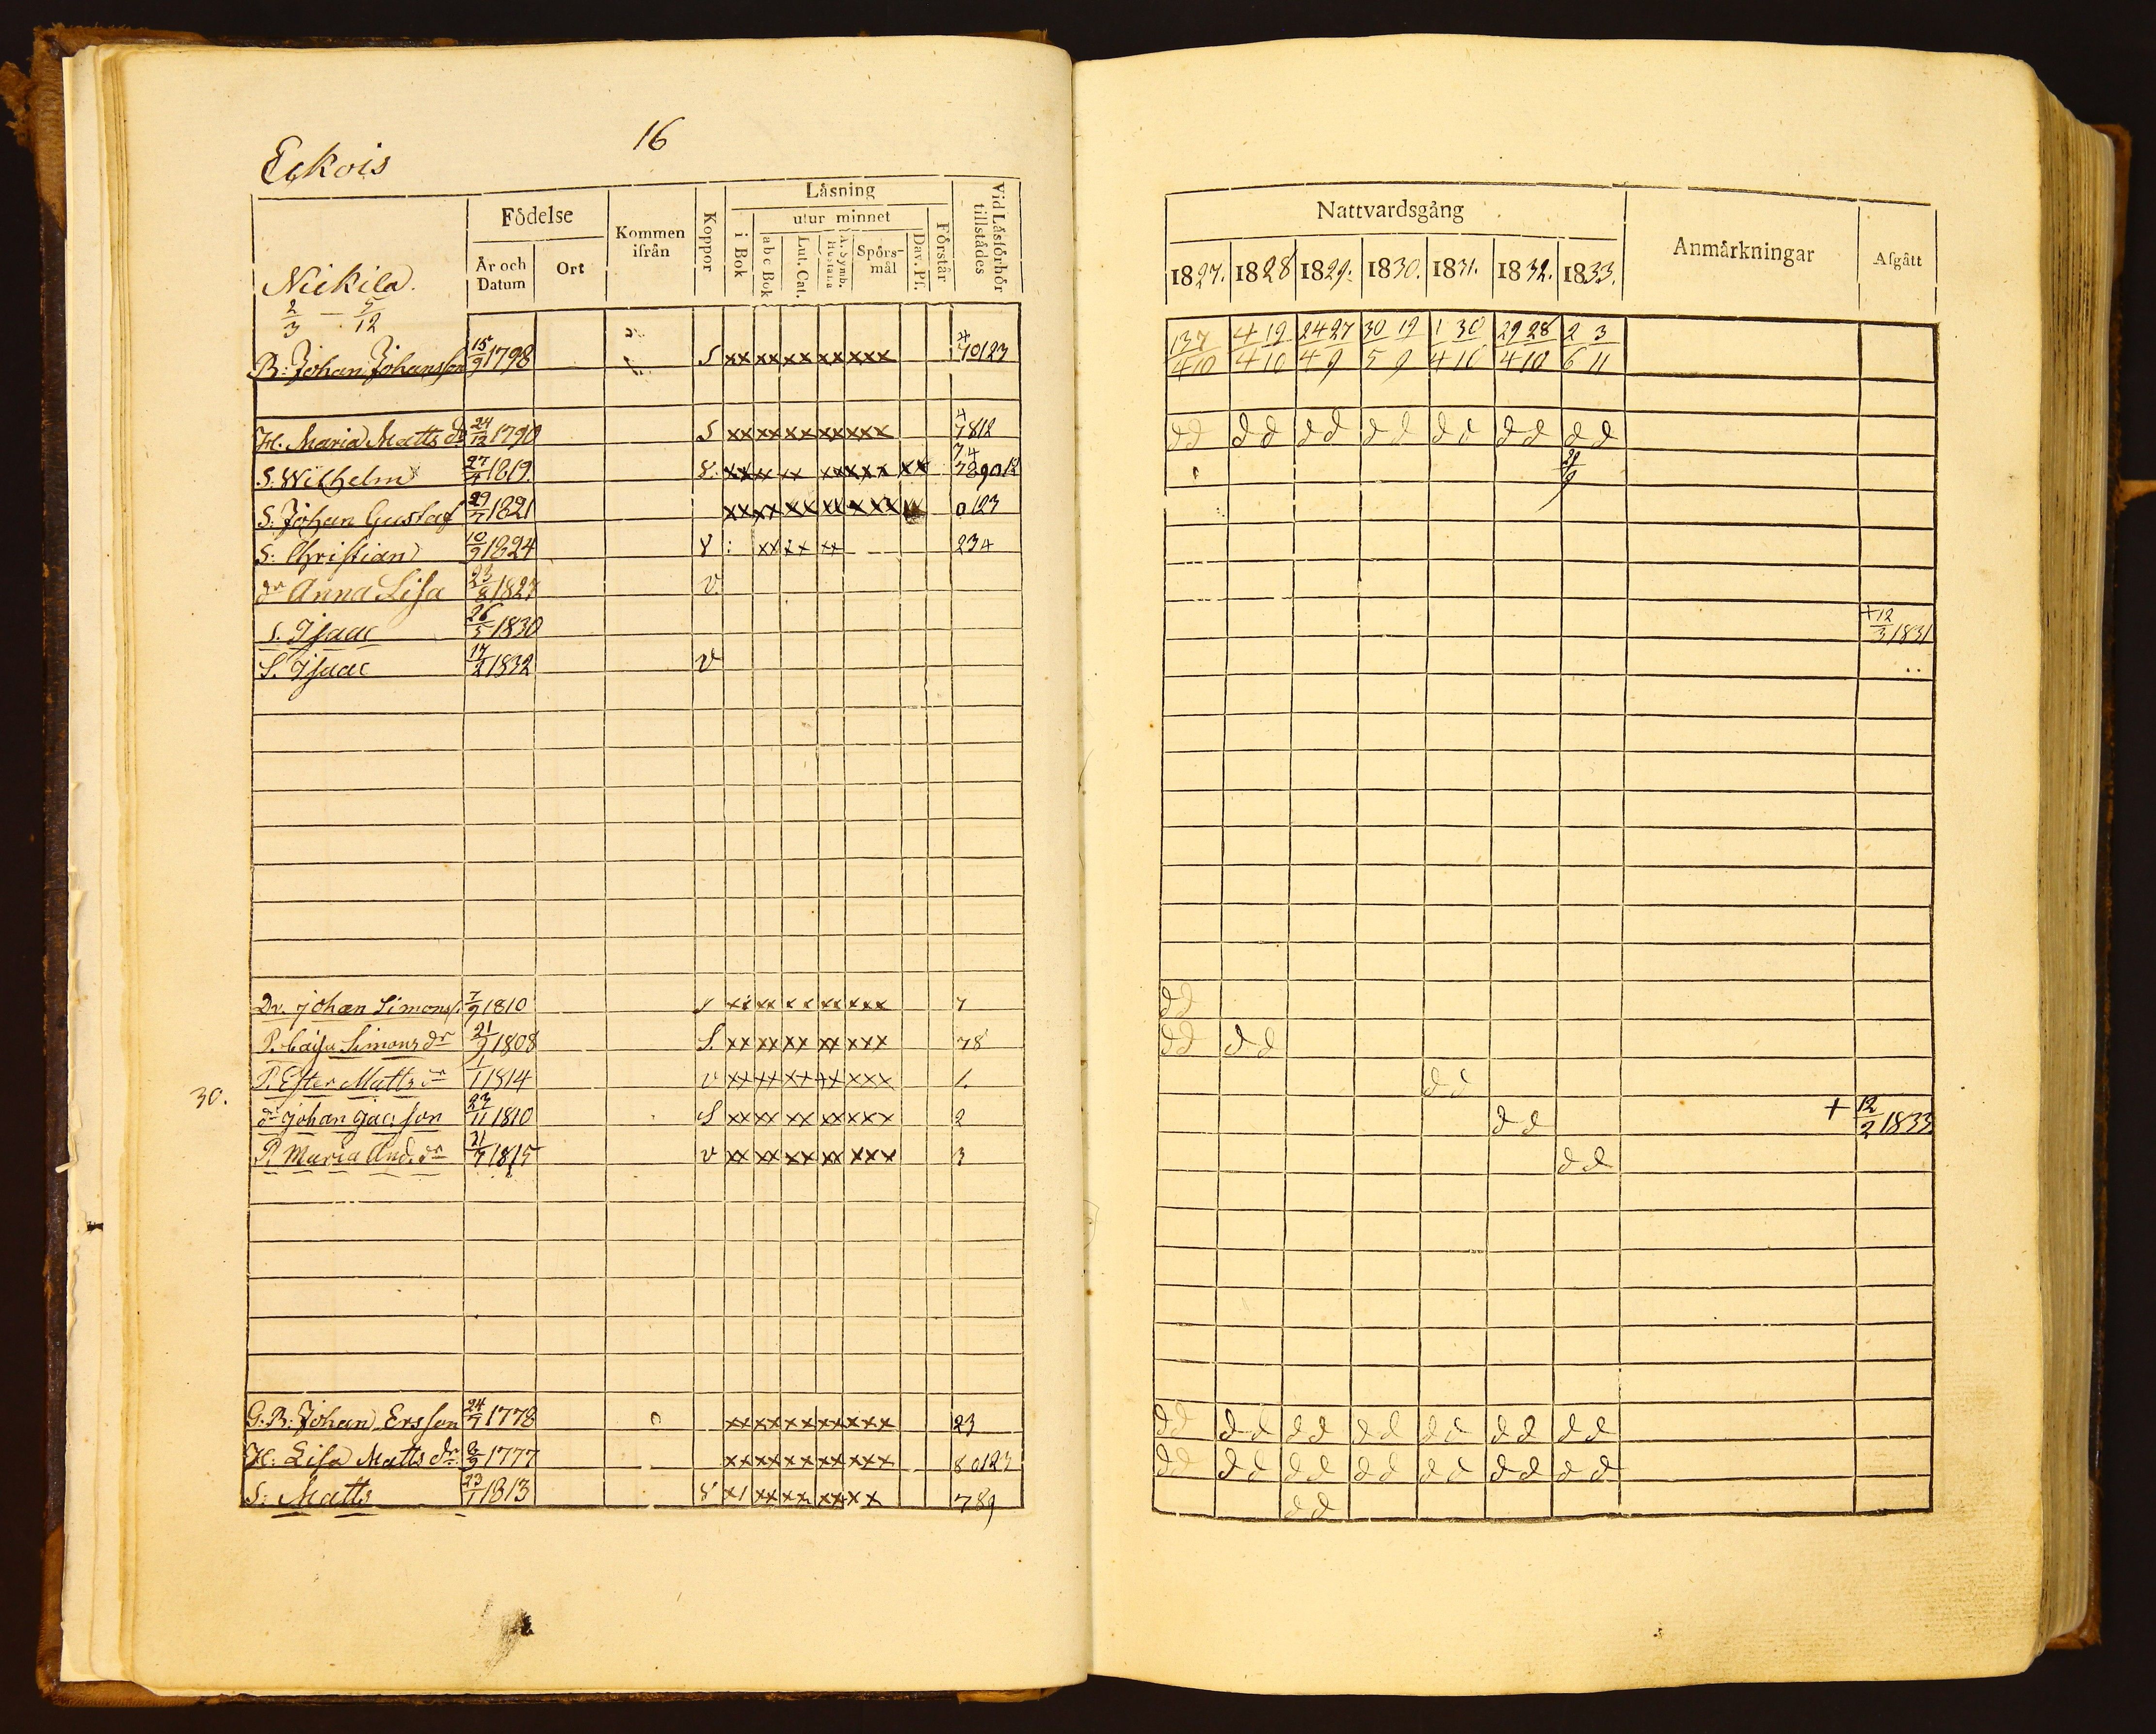 16
Eckois
Födelse
Kommen ifrån
Koppor
Läsning
Vid Läsförhör tillstådes
i Bok
utur minnet
Förstår
abc Bok
Lut. Cat.
A. Symb. Hustafla
Spörsmål
Dav. Ps.
År och Datum
Ort
Nattvardsgång
Anmärkningar
Afgått
1827. 1828 1829. 1830. 1831. 1832. 1833.
Nickila.
2/3 — 5/12
B: Johan Johansson 15/9 1798 S xx xx xx xx xxx 4 70123 137/410 4 19/4 10 24 27/4 9 30 19/5 9 1 30/4 10 29 28/4 10 2 3/6 11
H. Maria Matts dr 24/12 1790 S xx xx xx xx xxx 4 7812 dd dd dd dd dd dd dd
S. Wilhelm 27/4 1819. V. xx xx xx xx xxx xx 74 789012 29/9
S. Johan Gustaf 29/7 1821 xx xx xx xx xxx 0123
S: Christian 10/9 1824 V : xx xx xx 234
dr Anna Lisa 23/8 1827 v.
s. Isaac 26/5 1830 + 12/3 1831
S. Isaac 17/2 1832 v
Dr. Johan Simons s. 7/9 1810 s xx xx xx xx xxx 7 dd
P. Caisa Simons dr 21/9 1808 S. xx xx xx xx xxx 78 dd dd
P. Ester Matts dr 1/1 1814 v xx xx xx xx xxx 1. dd
30.
dr Johan Jac: son 23/11 1810 S xx xx xx xx xxx 2 dd + 12/2 1833
P. Maria And. dr 21/7 1815 v xx xx xx xx xxx 3 dd
G. B: Johan Ersson 24/7 1778 xx xx xx xx xxx 23 dd dd dd dd dd dd dd
H: Lisa Matts dr. 2/9 1777 xx xx xx xx xxx 80123 dd dd dd dd dd dd dd
S: Matts 23/1 1813 V x1 xx xx xx xx 789 dd